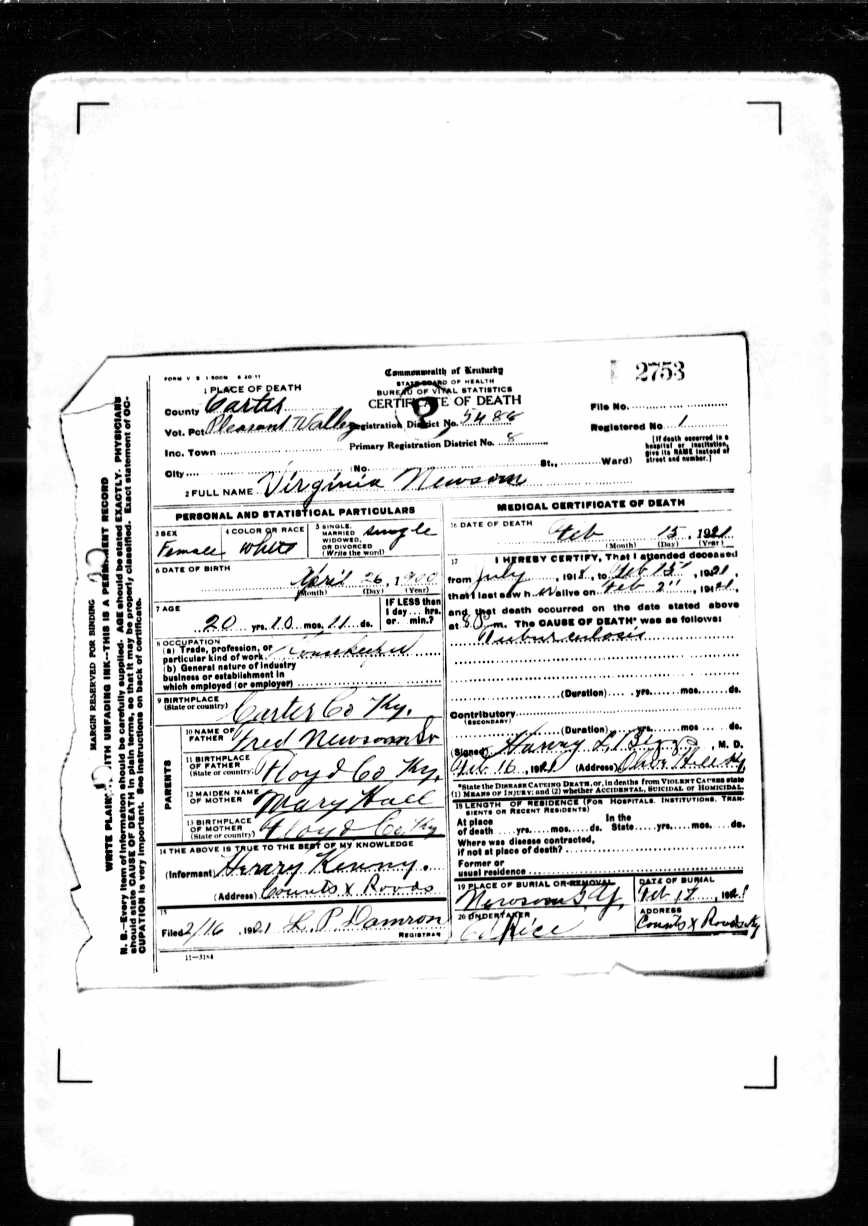 FORM V S 1 500M 8 20 11
Commonwealth of Kentucky
STATE BOARD OF HEALTH
BUREAU OF VITAL STATISTICS
CERTIFICATE OF DEATH
2753
1 PLACE OF DEATH
County Carter
Vot. Pct Pleasant Valley Registration District No. 5488
Inc. Town Primary Registration District No. 8
City No. St., Ward)
File No.
Registered No. 1
[If death occurred in a hospital or institution, give its NAME instead of street and number.]
2 FULL NAME Virginia Newsom
PERSONAL AND STATISTICAL PARTICULARS
3 SEX Female
4 COLOR OR RACE White
5 SINGLE, MARRIED WIDOWED, OR DIVORCED (Write the word) single
6 DATE OF BIRTH April 26, 1900
(Month) (Day) (Year)
7 AGE 20 yrs. 10 mos. 11 ds.
IF LESS than 1 day... hrs. or... min.?
8 OCCUPATION
(a) Trade, profession, or particular kind of work Housekeeper
(b) General nature of industry business or establishment in which employed (or employer)
9 BIRTHPLACE (State or country) Carter Co Ky.
PARENTS
10 NAME OF FATHER Fred Newsom Sr
11 BIRTHPLACE OF FATHER (State or country) Floyd Co Ky.
12 MAIDEN NAME OF MOTHER Mary Hall
13 BIRTHPLACE OF MOTHER (State or country) Floyd Co. Ky
14 THE ABOVE IS TRUE TO THE BEST OF MY KNOWLEDGE
(Informant)
(Address) Counts X Roads
15
Filed 2/16, 1921 L. P. Damron
REGISTRAR
11—3184
MEDICAL CERTIFICATE OF DEATH
16 DATE OF DEATH Feb 15, 1921
(Month) (Day) (Year)
17 I HEREBY CERTIFY, That I attended deceased
from July, 1918, to Feb 15, 1921,
that I last saw her alive on Feb 2", 1921,
and that death occurred on the date stated above
at m. The CAUSE OF DEATH* was as follows:
Tuburculosis
(Duration) yrs. mos. ds.
Contributory (SECONDARY)
(Duration) yrs. mos. ds.
(Signed) Harry L. , M. D.
Feb 16, 1921 (Address) Olive Hill Ky
*State the DISEASE CAUSING DEATH, or, in deaths from VIOLENT CAUSES state (1) MEANS OF INJURY; and (2) whether ACCIDENTAL, SUICIDAL or HOMICIDAL.
18 LENGTH OF RESIDENCE (FOR HOSPITALS, INSTITUTIONS, TRANSIENTS OR RECENT RESIDENTS)
At place of death yrs. mos. ds. In the State yrs. mos. ds.
Where was disease contracted, if not at place of death?
Former or usual residence
19 PLACE OF BURIAL OR REMOVAL Newsom
DATE OF BURIAL Feb 17, 1921
20 UNDERTAKER Rice
ADDRESS Counts X Roads Ky
MARGIN RESERVED FOR BINDING
WRITE PLAINLY, WITH UNFADING INK—THIS IS A PERMANENT RECORD
N. B.—Every item of information should be carefully supplied. AGE should be stated EXACTLY. PHYSICIANS
should state CAUSE OF DEATH in plain terms, so that it may be properly classified. Exact statement of OC-
CUPATION is very important. See instructions on back of certificate.